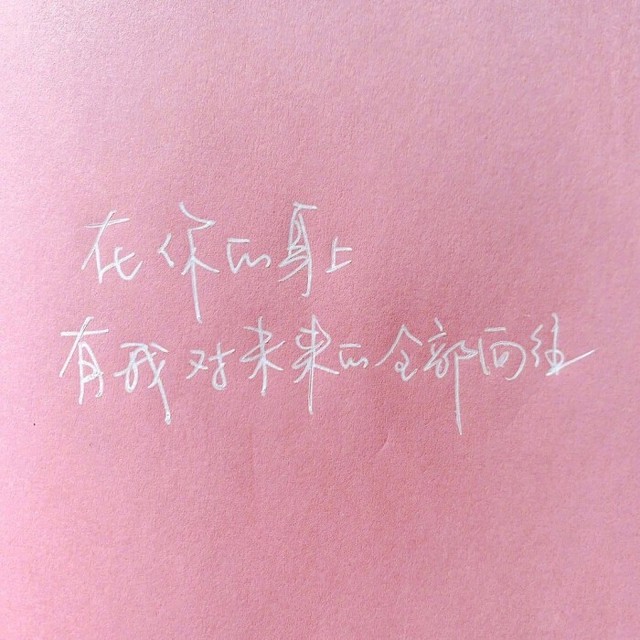 在你的身上
有我对未来的全部向往